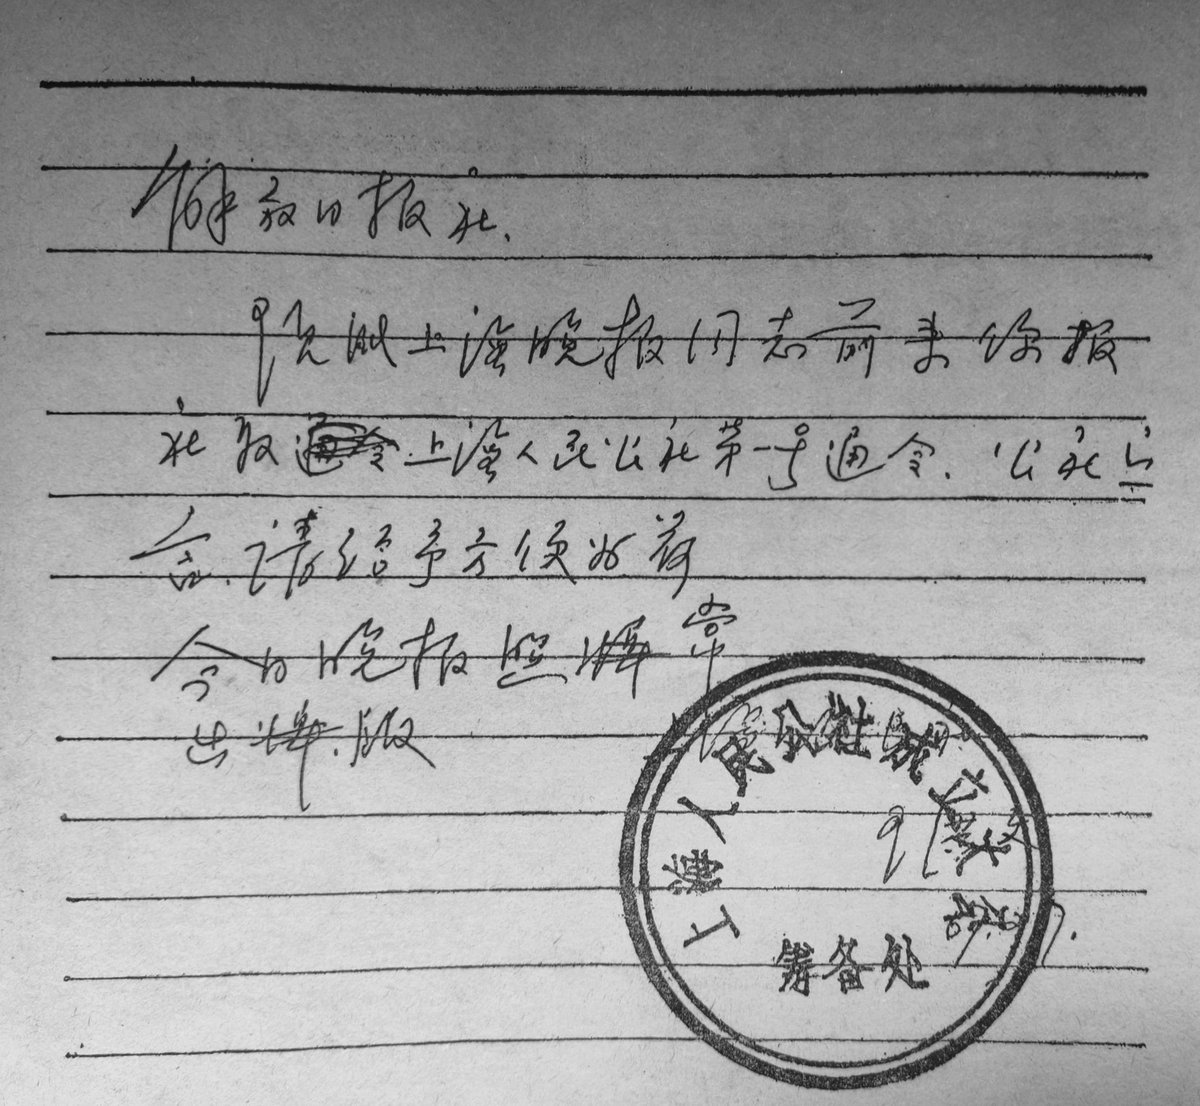 解放日报社.
现派上海晚报同志前来你报
社取上海人民公社第一号通令、公社宣
言.请给予方便为荷
今日晚报照常
出版
上海人民公社成立大会
筹备处